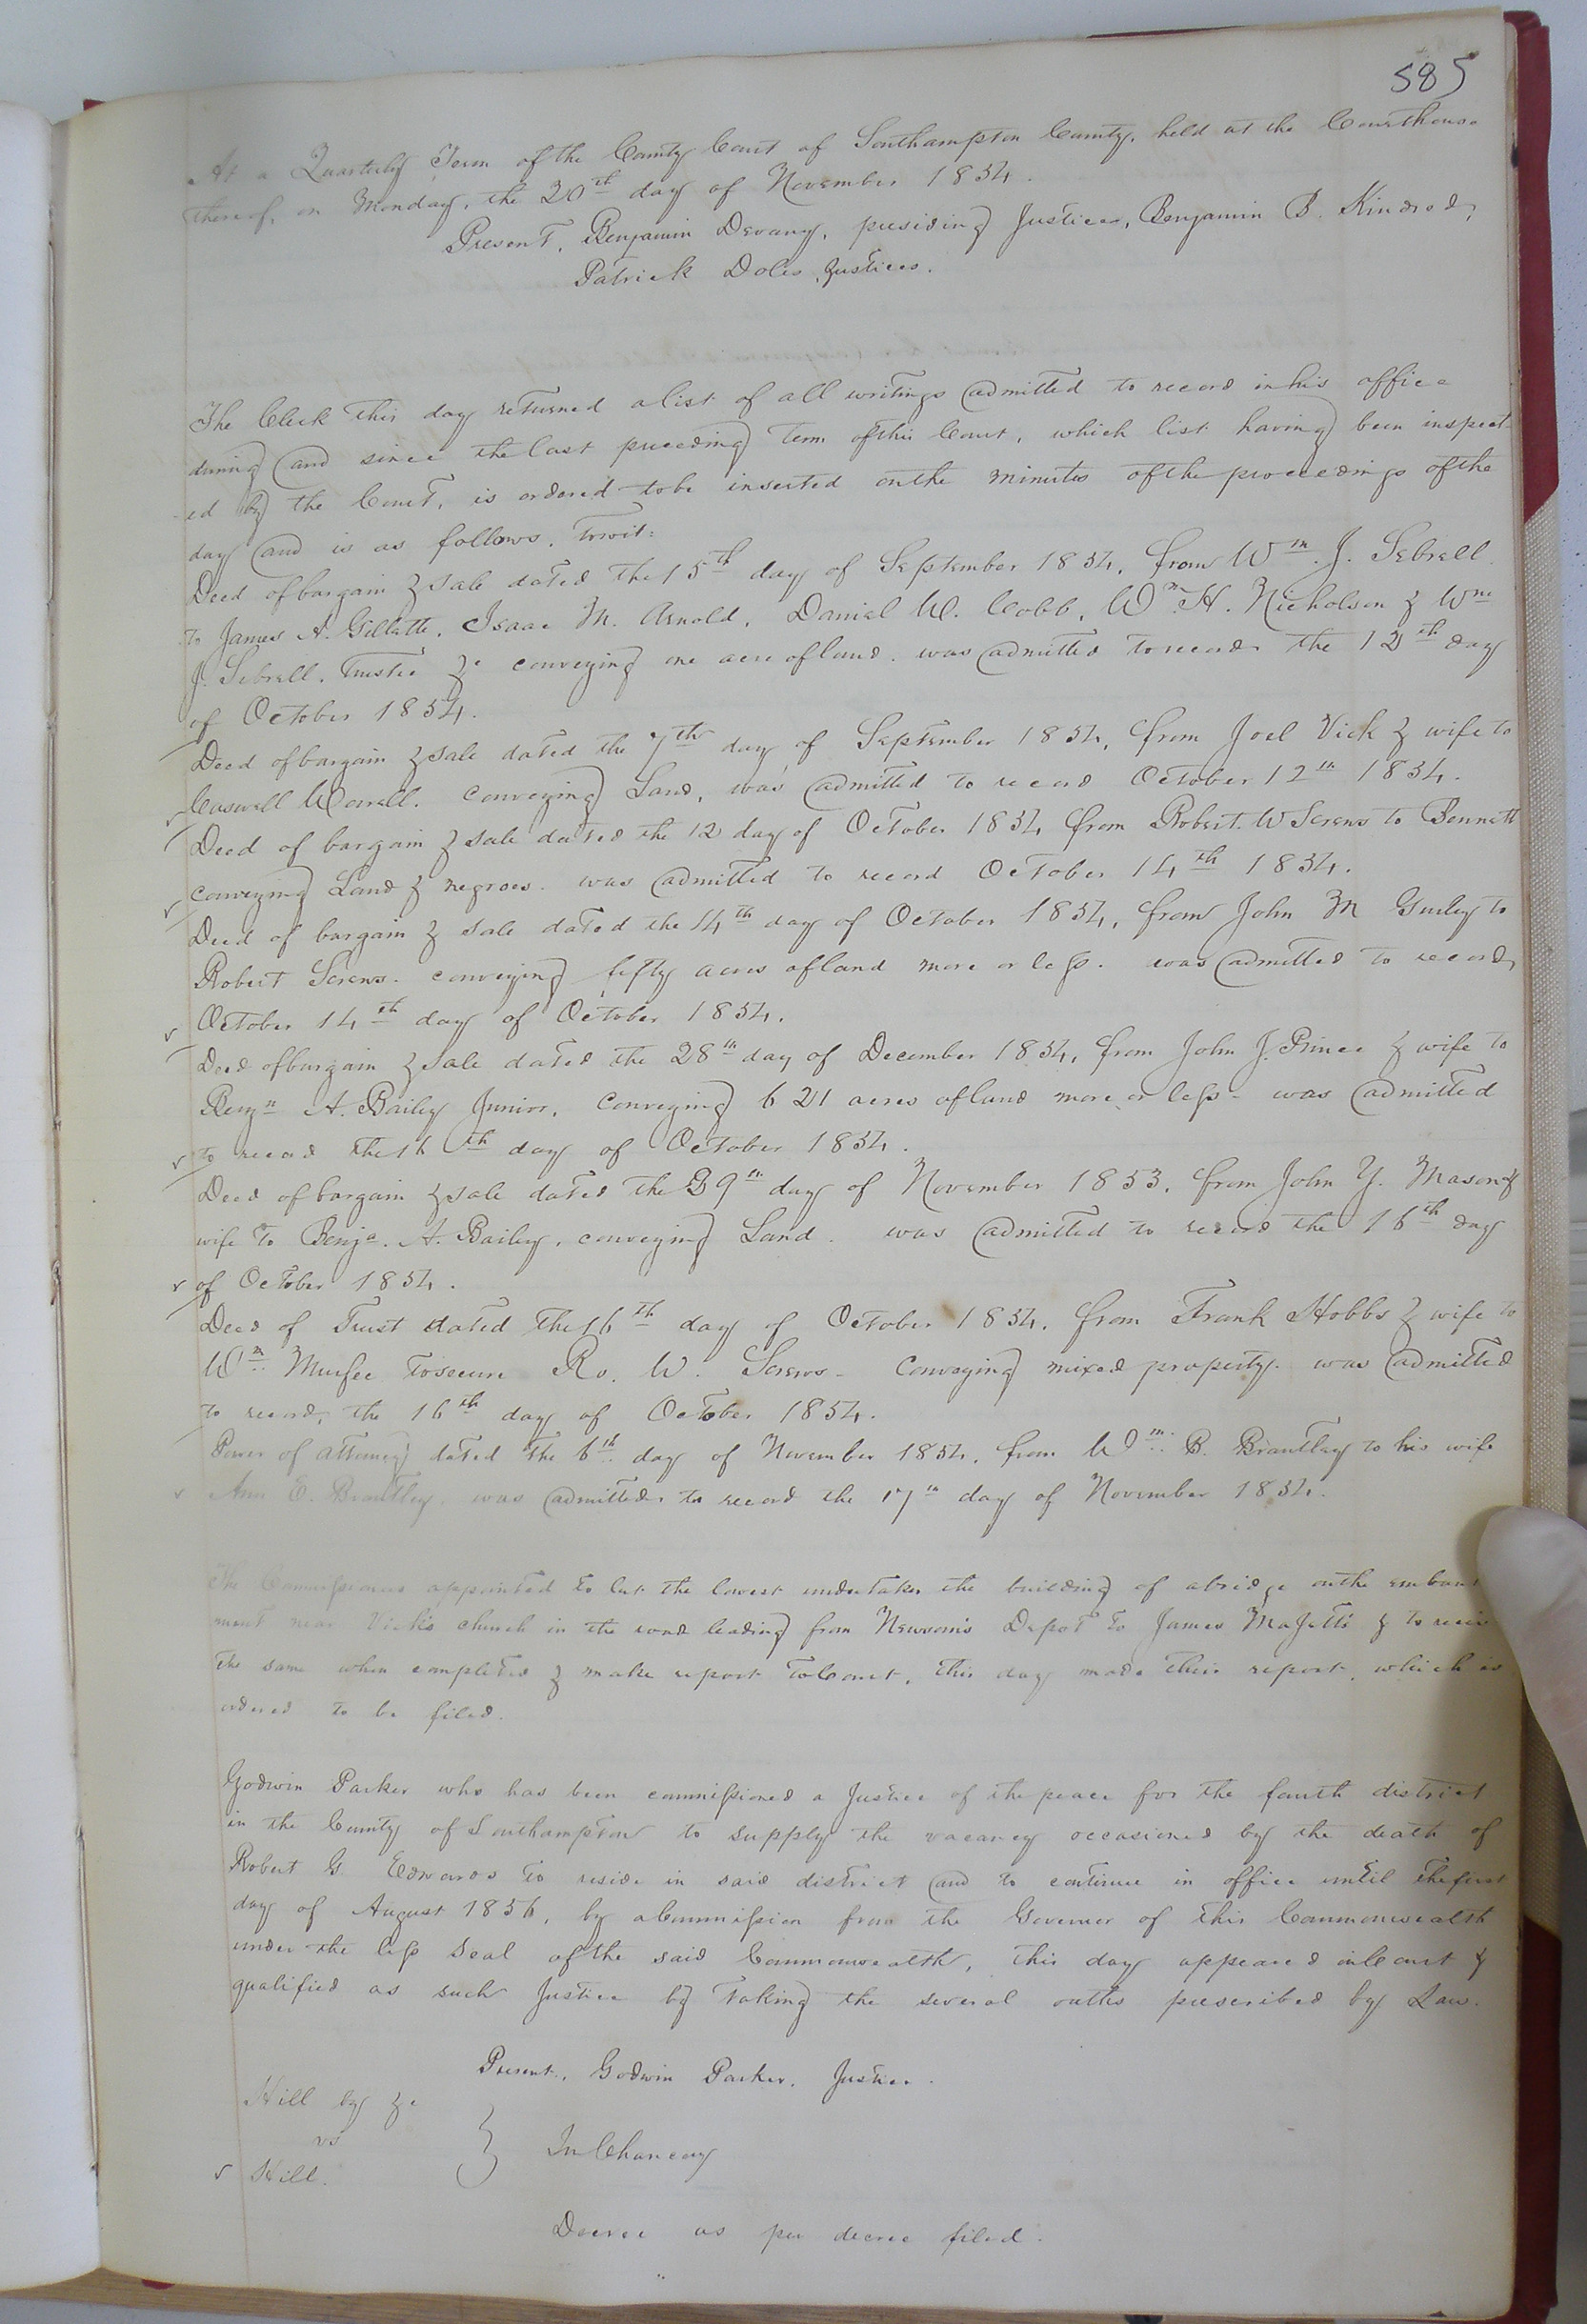 585
At a Quarterly Term of the County Court of Southampton County, held at the Courthouse
thereof, on Monday, the 20th day of November 1854.
Present, Benjamin Devany, presiding Justice, Benjamin B. Kindred,
Patrick Doles, Justices.
The Clerk this day returned a list of all writings admitted to record in his office
during and since the last preceding Term of this Court, which list having been inspect-
ed by the Court, is ordered to be inserted on the minutes of the proceedings of the
day and is as follows, towit:
Deed of bargain & sale dated the 15th day of September 1854, from Wm. J. Sebrell
to James A. Gillette, Isaac M. Arnold, Daniel W. Cobb, Wm H. Nicholson & Wm
J. Sebrell, Trustee &c conveying one acre of land. was admitted to record the 12th day
of October 1854.
Deed of bargain & sale dated the 7th day of September 1854, from Joel Vick & wife to
Caswell Worrell. conveying Land, was admitted to record October 12th 1854.
Deed of bargain & sale dated the 12 day of October 1854 from Robert. W Screws to Bennett
conveying Land & negroes. was admitted to record October 14th 1854.
Deed of bargain & sale dated the 14th day of October 1854, from John M Gurley to
Robert Screws. conveying fifty acres of land more or less. was admitted to record
October 14th day of October 1854.
Deed of bargain & sale dated the 28th day of December 1854, from John J. Prince & wife to
Benjn A. Bailey Junior, Conveying 621 acres of land more or less - was admitted
to record the 16th day of October 1854.
Deed of bargain & sale dated the 29th day of November 1853, from John Y. Mason &
wife to Benja. A. Bailey, conveying Land. was admitted to record the 16th day
of October 1854.
Deed of Trust dated the 16th day of October 1854. from Frank Hobbs & wife to
Wm Murfee to secure Ro. W. Screws - Conveying mixed property. was admitted
to record, the 16th day of October 1854.
Power of attorney dated the 6th day of November 1854, from Wm. B. Brantley to his wife
Ann E. Brantley. was admitted to record the 17th day of November 1854.
The Commissioners appointed to let the lowest undertaker the building of a bridge on the embank
ment near Vick's church in the road leading from Newsom's Depot to James Majetts & to receiv
the same when completed & make report to Court, this day made their report, which is
ordered to be filed.
Godwin Parker who has been commissioned a Justice of the peace for the fourth district
in the County of Southampton to supply the vacancy occasioned by the death of
Robert G. Edwards to reside in said district and to continue in office until the first
day of August 1856, by a Commission from the Governor of this Commonwealth
under the less Seal of the said Commonwealth, this day appeared in Court &
qualified as such Justice by taking the several oaths prescribed by Law.
Present, Godwin Parker, Justice.
Hill by &c
vs } In Chancery
Hill.
Decree as per decree filed.